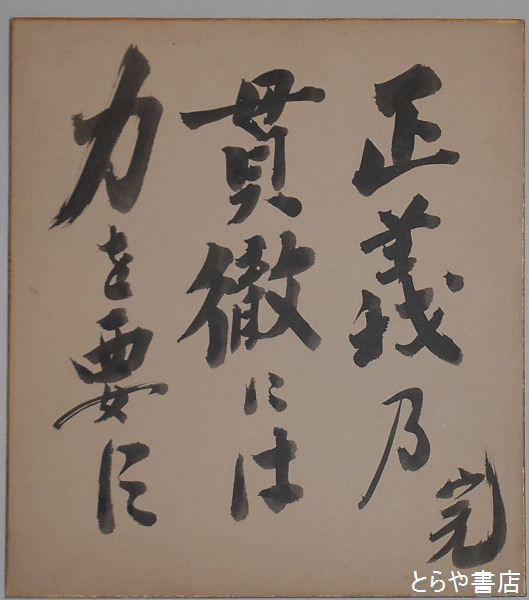 正義乃
貫徹には
力を要須
完
とらや書店